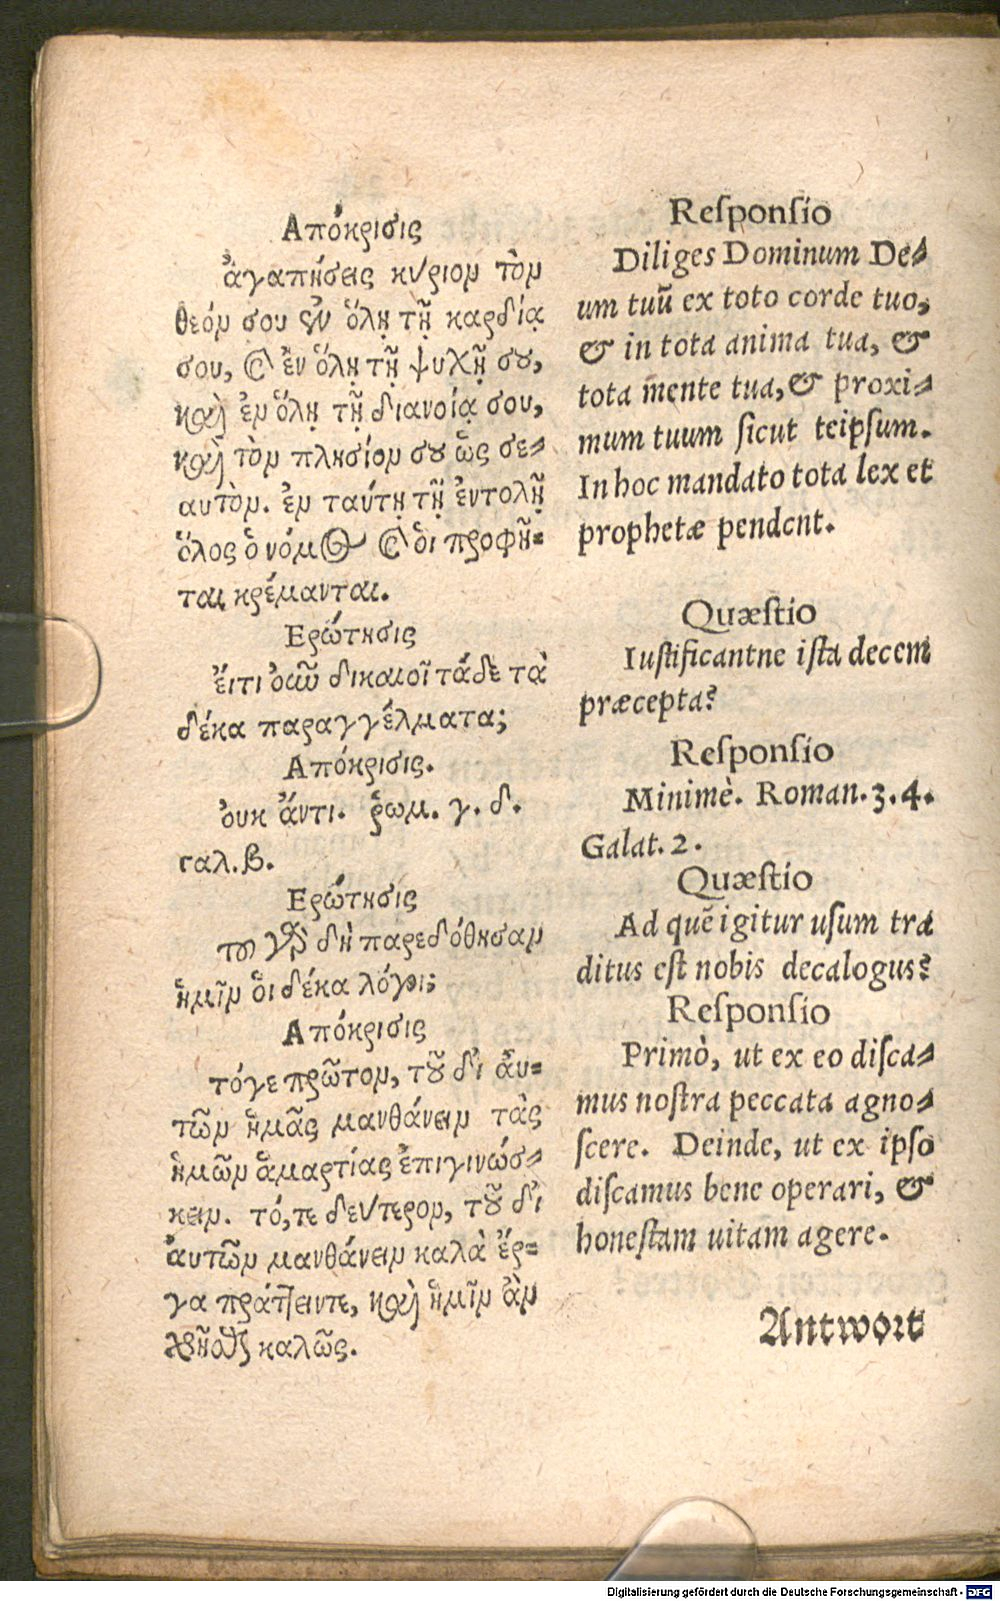 Απόκρισις
ἀγαπήσεις κύριον τὸν
θεόν σου ἐν ὅλῃ τῇ καρδίᾳ
σου, καὶ ἐν ὅλῃ τῇ ψυχῇ σου,
καὶ ἐν ὅλῃ τῇ διανοίᾳ σου,
καὶ τὸν πλησίον σου ὡς σε-
αυτὸν. ἐν ταύτῃ τῇ ἐντολῇ
ὅλος ὁ νόμος καὶ ὁι προφῆ-
ται κρέμανται.
Ερώτησις
ἔιτι ὀυῶ δικαιοῖ τάδε τὰ
δέκα παραγγέλματα;
Απόκρισις.
ὀυκ ἄντι. ῥωμ. γ. δ.
γαλ. β.
Ερώτησις
του γὰρ δὴ παρεδόθησαν
ἡμῖν ὁι δέκα λόγοι;
Απόκρισις
τόγε πρῶτον, τοῦ δἰ ἀυ-
τῶν ἡμᾶς μανθάνειν τὰς
ἡμῶν ἁμαρτίας ἐπιγινώσ-
κειν. τό,τε δεύτερον, τοῦ δἰ
ἀυτῶν μανθάνειν καλὰ ἔρ-
γα πράττειντε, καὶ ἡμῖν ἀν
χρῆσθαι καλῶς.
Reſponſio
Diliges Dominum De-
um tuū ex toto corde tuo,
& in tota anima tua, &
tota mente tua, & proxi-
mum tuum ſicut teipſum.
In hoc mandato tota lex et
prophetæ pendent.
Quæſtio
Iuſtificantne iſta decem
præcepta?
Reſponſio
Minimè. Roman. 3. 4.
Galat. 2.
Quæſtio
Ad quē igitur uſum tra
ditus eſt nobis decalogus?
Reſponſio
Primò, ut ex eo diſca-
mus noſtra peccata agno-
ſcere. Deinde, ut ex ipſo
diſcamus bene operari, &
honeſtam uitam agere.
Antwort
Digitalisierung gefördert durch die Deutsche Forschungsgemeinschaft - DFG